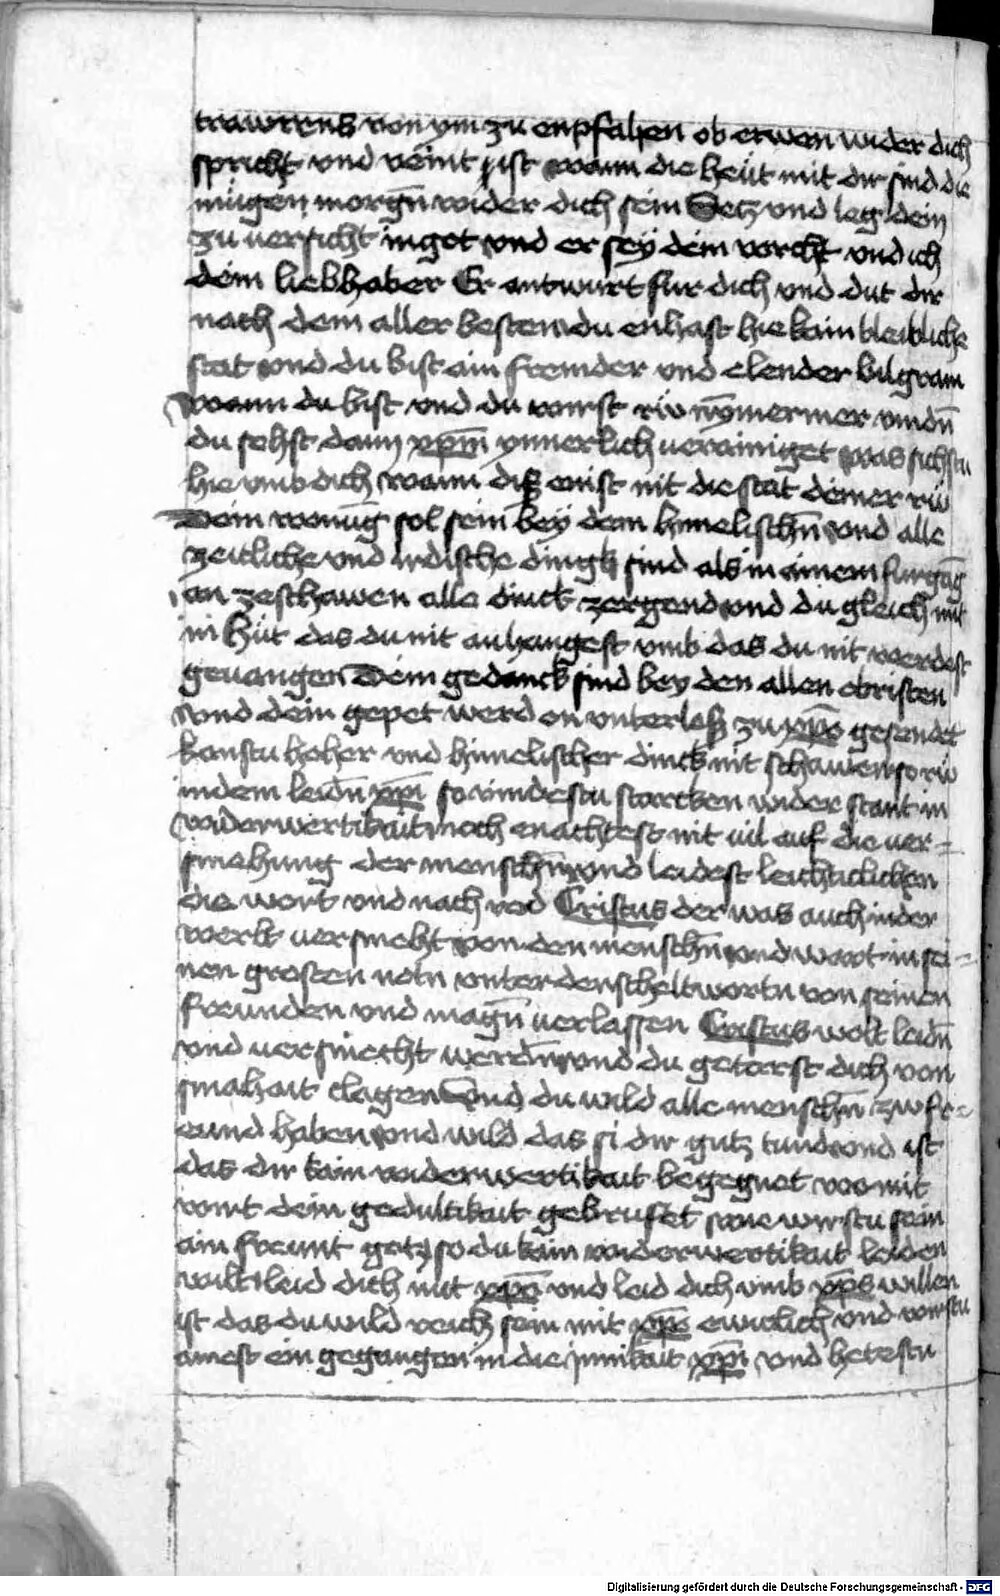 trawrens von ym zu enpfahen ob etwen wider dich
spricht vnd veint ist wann die heüt mit dir sind die
mügen morgn̄ wider dich sein Setz vnd leg dein
zu uersicht in got vnd er sey dein vorcht vnd ich
dein liebhaber Er antwurt für dich vnd dut dir
nach dem aller besten du enhast hie kain bleibliche
stat vnd du bist ain fremder vnd elender bilgram
wann du bist vnd du wirst riv nymermer vindn̄
du sehst dann xp̄m ynnerlich ueräiniget was sichstu
hie vmb dich wann diß enist nit die stat deiner riv
Dein wonūg sol sein bey dem himelischn̄ vnd alle
zeitliche vnd irdische dingk sind als in ainem furgāg
an zeschawen alle dinck zergend vnd du gleich mit
in hüt das du nit anhangest vmb das du nit werdest
geuangen Dein gedanck sind bey den allen obristen
vnd dein gepet werd on vnterlaß zu xp̄o gesendet
kanstu hoher vnd himelischer dinck nit schawen so riv
in dem leidn̄ xp̄i so vindestu starcken wider stant in
widerwertikait noch enachtest nit uil auf die uer=
smahung der menschn̄ vnd leidest leichticlichen
die wort vnd nach red Cristus der was auch in der
werlt uersmeht von den menschn̄ vnd wart in sei=
nen grosten notn̄ vnter den scheltwortn̄ von seinen
freunden vnd magn̄ uerlassen Cristus wolt leidn̄
vnd uersmecht werdn̄ vnd du getarst dich von
smahait clagen Vnd du wild alle menschn̄ zw fr=
eund haben vnd wild das si dir gutz tund vnd ist
das dir kain widerwertikait begegnet wo mit
wirt dein gedultikait gebrufet wie wirstu sein
ain freunt gotz so du kain widerwertikait leiden
wilt leid dich mit xp̄o vnd leid dich vmb xp̄s willen
ist das du wild reich sein mit xp̄o ewiclich vnd wirstu
ainest ein gegangen in die innikait xp̄i vnd hetestu